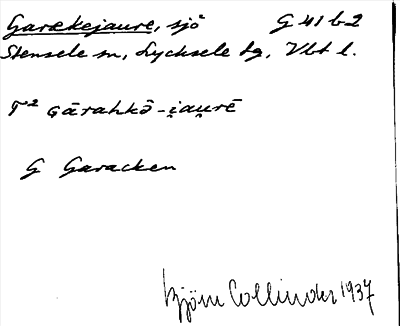 Garækejaure, sjö G 41 b 2
Stensele sn, Lycksele lg, Vbt l.
T² Gārahkō-i̯au̯rē
G Garacken
Björn Collinder 1937